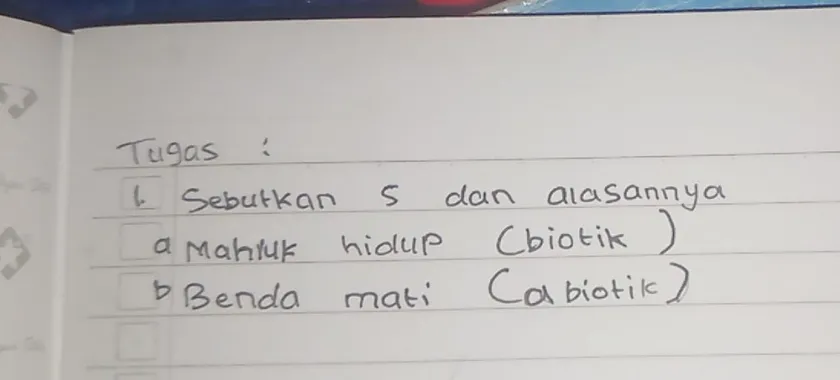 Tugas :
1. Sebutkan 5 dan alasannya
a Mahluk hidup (biotik)
b Benda mati (abiotik)